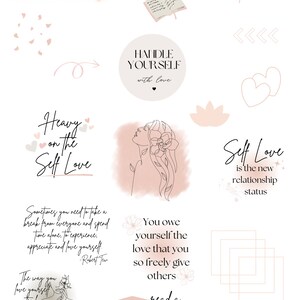 HANDLE
YOURSELF
with love
Heavy
on the
Self Love
Self Love
is the new
relationship
status
Sometimes you need to take a
break from everyone and spend
time alone, to experience,
appreciate and love yourself.
You owe
yourself the
love that you
so freely give
others
The way you
love yourself
made